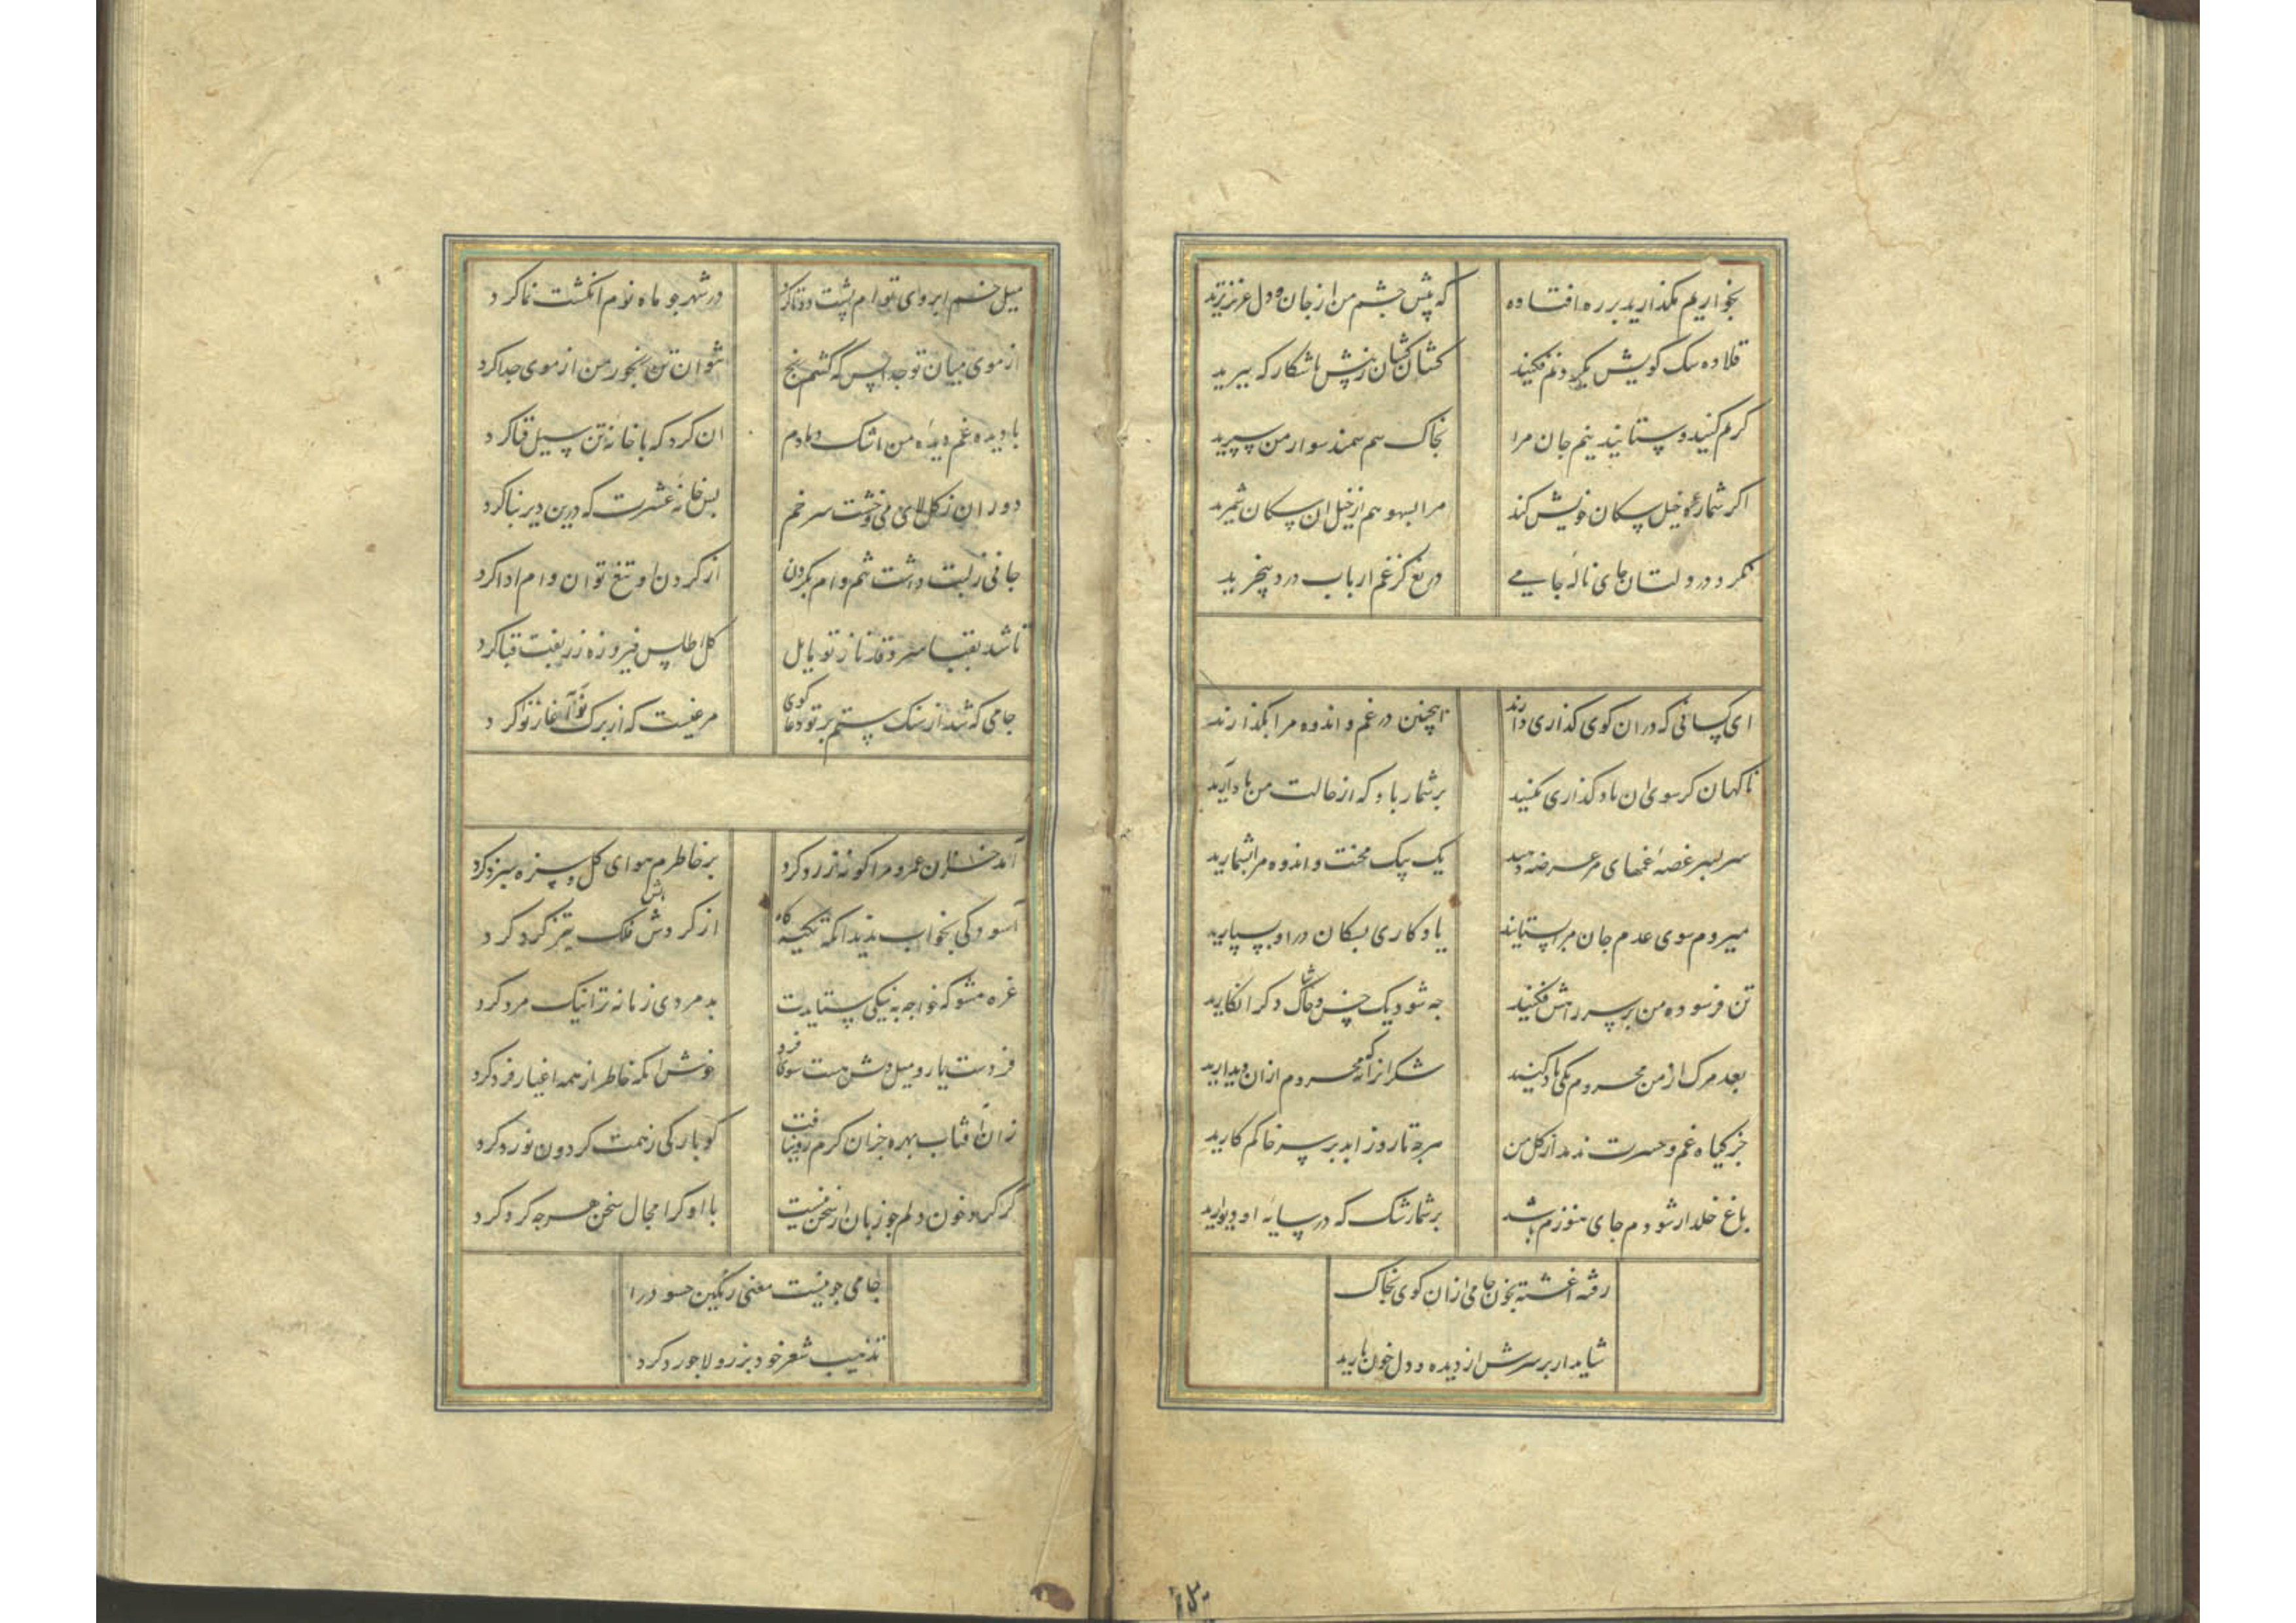 بخواریم مگذارید بر ره افتاده که پیش چشم من از جان و دل عزیزترید
قلاده سگ کویش بگردنم فکنید کشان کشان زپیش تا شکارگه ببرید
کرم کنید و ستانید نیم جان مرا بخاک سم سمند سوار من سپرید
اگر شماره خیل سگان خویش کند مرا بسهو هم از خیل آن سگان شمرید
نکرد در دلتان جای ناله جامی دریغ کز غم ارباب درد بیخبرید
ای کسانی که در ان کوی گذاری دارند اینچنین در غم و اندوه مرا بگذارند
ناگهان گر سوی ان ماه گذاری بکنید بر شما باد که از حالت من یاد آرید
سر بسر غصه و غمهای مرا عرضه دهید یک بیک محنت و اندوه مرا بشمارید
میروم سوی عدم جان مرا بستانید یادگاری بسگان در او بسپارید
تن فرسوده من بر سر راهش فکنید چه شود یک خس و خاشاک دگر انگارید
بعد مرگ از من محروم یکی یاد کنید شکر انرا که نه محروم ازان دیدارید
جز گیاه غم و حسرت ندمد از گل من هرچه تا روز ابد بر سر خاکم کارید
باغ خلد ار شودم جای هنوزم باشد بر شما رشک که در سایه او دیوارید
رفته اغشته بخون جامی ازان کوی بخاک
شاید ار بر سرش از دیده و دل خون بارید
میل خم ابروی توام پشت دوتا کرد در شهر چو ماه نوم انگشت نما کرد
از موی میان تو جدا بس که کشم رنج نتوان تن رنجور من از موی جدا کرد
با دیده غم دیده من اشک دمادم ان کرد که با خانه تن سیل فنا کرد
دوران ز گل لای می و خشت سر خم بس خانه عشرت که درین دیر بنا کرد
جانی ز لبت داشت تنم وام بگردن از گردن او تیغ توان وام ادا کرد
تا شد بقبا سرو قد ناز تو مایل گل اطلس فیروزه زربفت قبا کرد
جامی که شد از سنگ ستم بر تو دعا گوی مرغیست که از برگ نوا آغاز نوا کرد
آمد خزان عمر و مرا گونه زرد کرد بر خاطرم هوای گل و سبزه سرد کرد
آسودگی بخواب ندید انکه تکیه گاه از گردش فلک تیز گرد کرد
غره مشو که خواجه به نیکی ستایدت بد مردی زمانه ترا نیک مرد کرد
فردست یار و میل دلش هست سوی فرد خوش انکه خاطر از همه اغیار فرد کرد
زان آفتاب بهره جز ان گرم رو نیافت کو بارگی ز همت گردون نورد کرد
گر کرد خون دلم چو زبان از سخن نیست با او کرا مجال سخن هرچه کرد کرد
جامی چو نیست معنی رنگین حسود را
تذهیب شعر خود بزر و لاجورد کرد